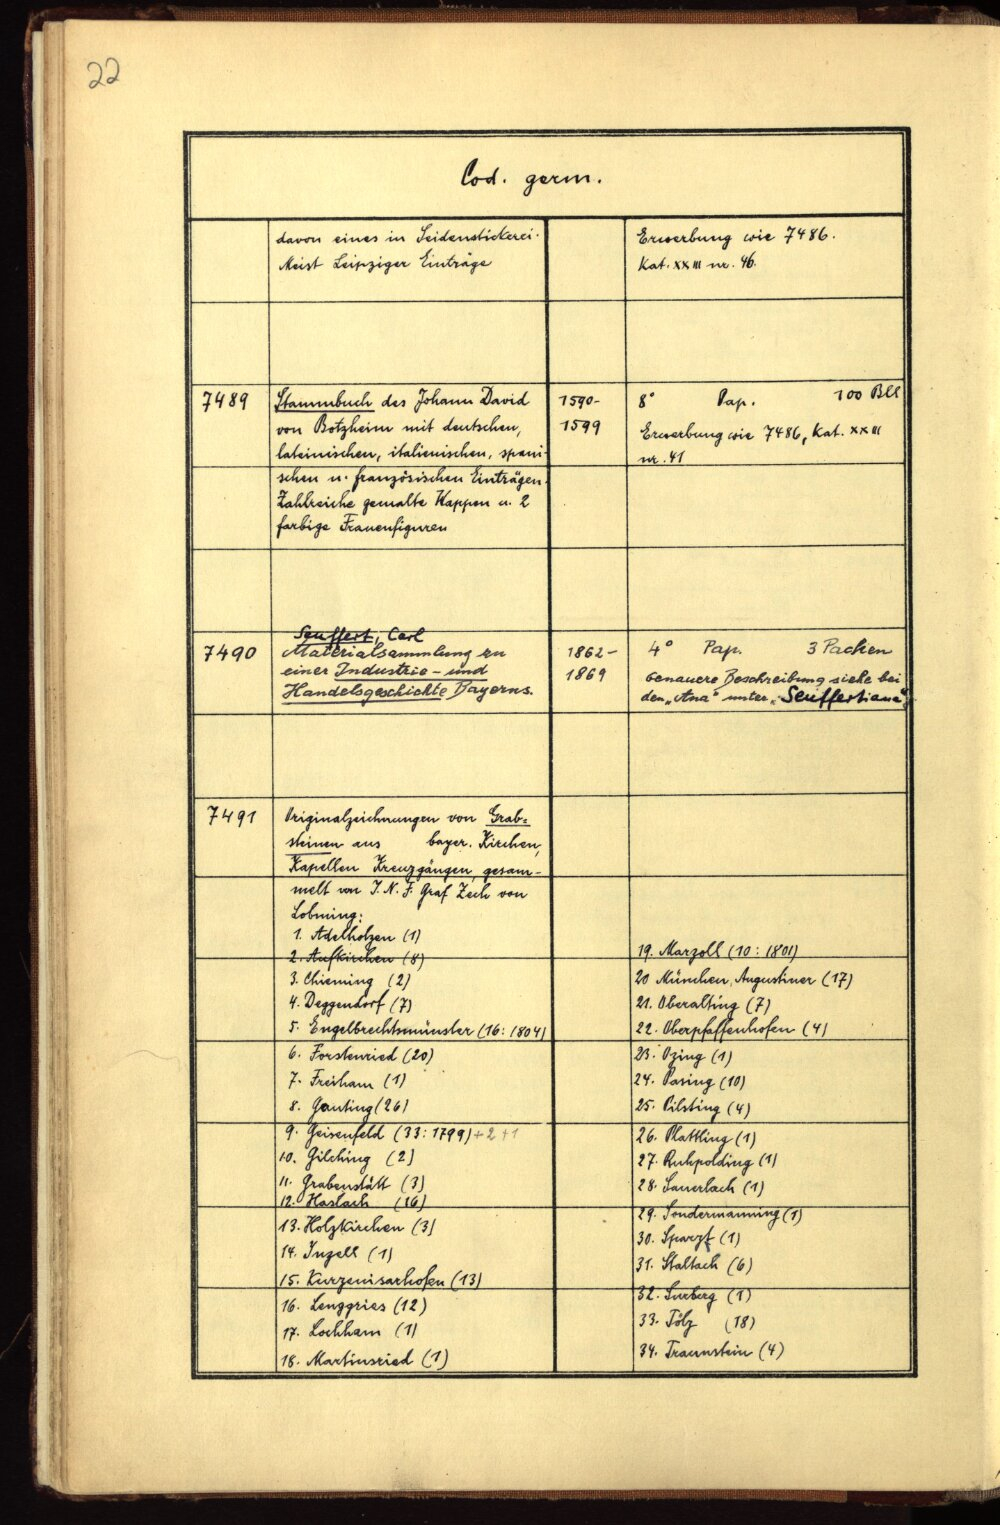 22
Cod. germ.
davon eines in Seidenstickerei.
Meist Leipziger Einträge
Erwerbung wie 7486.
Kat. XXIII nr. 46.
7489
Stammbuch des Johann David
von Botzheim mit deutschen,
lateinischen, italienischen, spani-
schen u. französischen Einträgen.
Zahlreiche gemalte Wappen u. 2
farbige Frauenfiguren
1590-
1599
8° Pap. 100 Bll
Erwerbung wie 7486, Kat. XXIII
nr. 41
7490
Seuffert, Carl
Materialsammlung zu
einer Industrie- und
Handelsgeschichte Bayerns.
1862-
1869
4° Pap. 3 Packen
Genauere Beschreibung siehe bei
den „Ana" unter „Seuffertiana"
7491
Originalzeichnungen von Grab=
steinen aus bayer. Kirchen,
Kapellen Kreuzgängen, gesam-
melt von J. N. F. Graf Zech von
Lobming:
1. Adelholzen (1)
2. Aufkirchen (8)
3. Chieming (2)
4. Deggendorf (7)
5. Engelbrechtsmünster (16: 1804)
6. Forstenried (20)
7. Freiham (1)
8. Gauting (26)
9. Geisenfeld (33: 1799) +2 +1
10. Gilching (2)
11. Grabenstätt (3)
12. Haslach (16)
13. Holzkirchen (3)
14. Inzell (1)
15. Kurzenisarhofen (13)
16. Lenggries (12)
17. Lochham (1)
18. Martinsried (1)
19. Marzoll (10: 1801)
20 München, Augustiner (17)
21. Oberalting (7)
22. Oberpfaffenhofen (4)
23. Ozing (1)
24. Pasing (10)
25. Pilsting (4)
26. Plattling (1)
27. Ruhpolding (1)
28. Sauerlach (1)
29. Sondermanning (1)
30. Sparzt (1)
31. Staltach (6)
32. Surberg (1)
33. Tölz (18)
34. Traunstein (4)